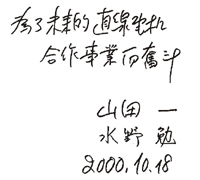 为了未来的直線电机
合作事業而奮斗
山田 一
水野 勉
2000.10.18